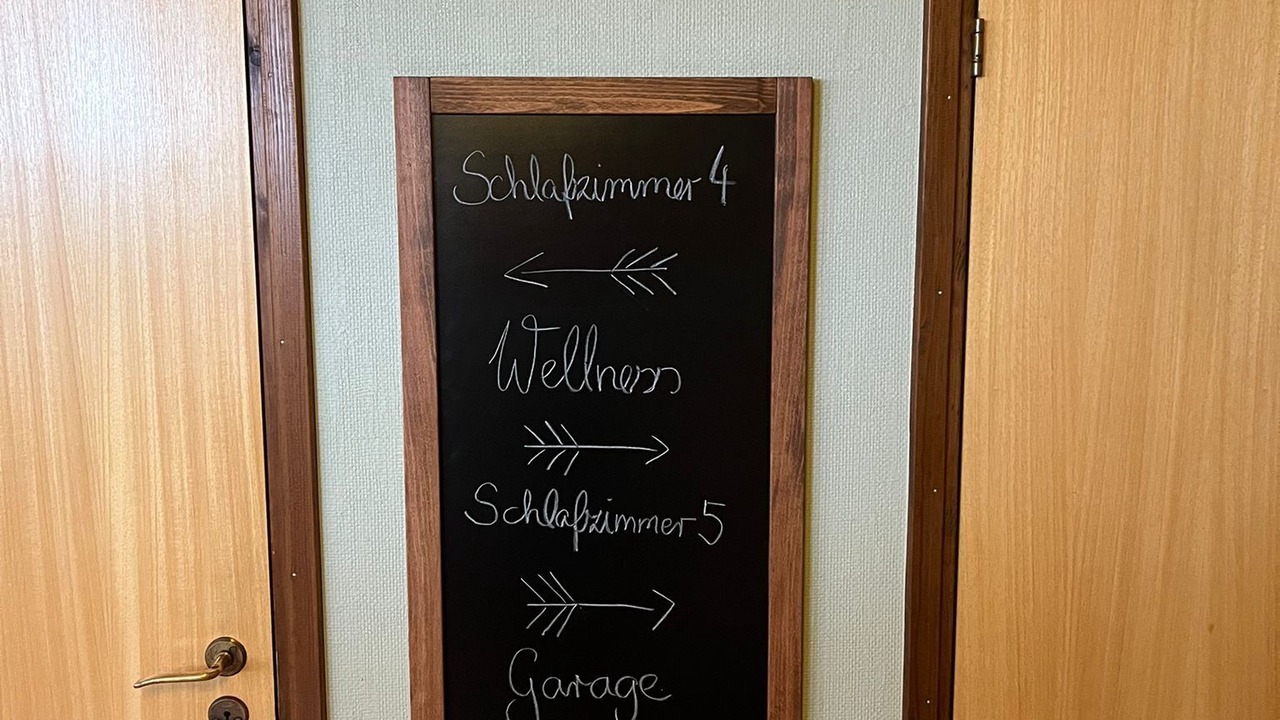 Schlafzimmer 4
Wellness
Schlafzimmer 5
Garage